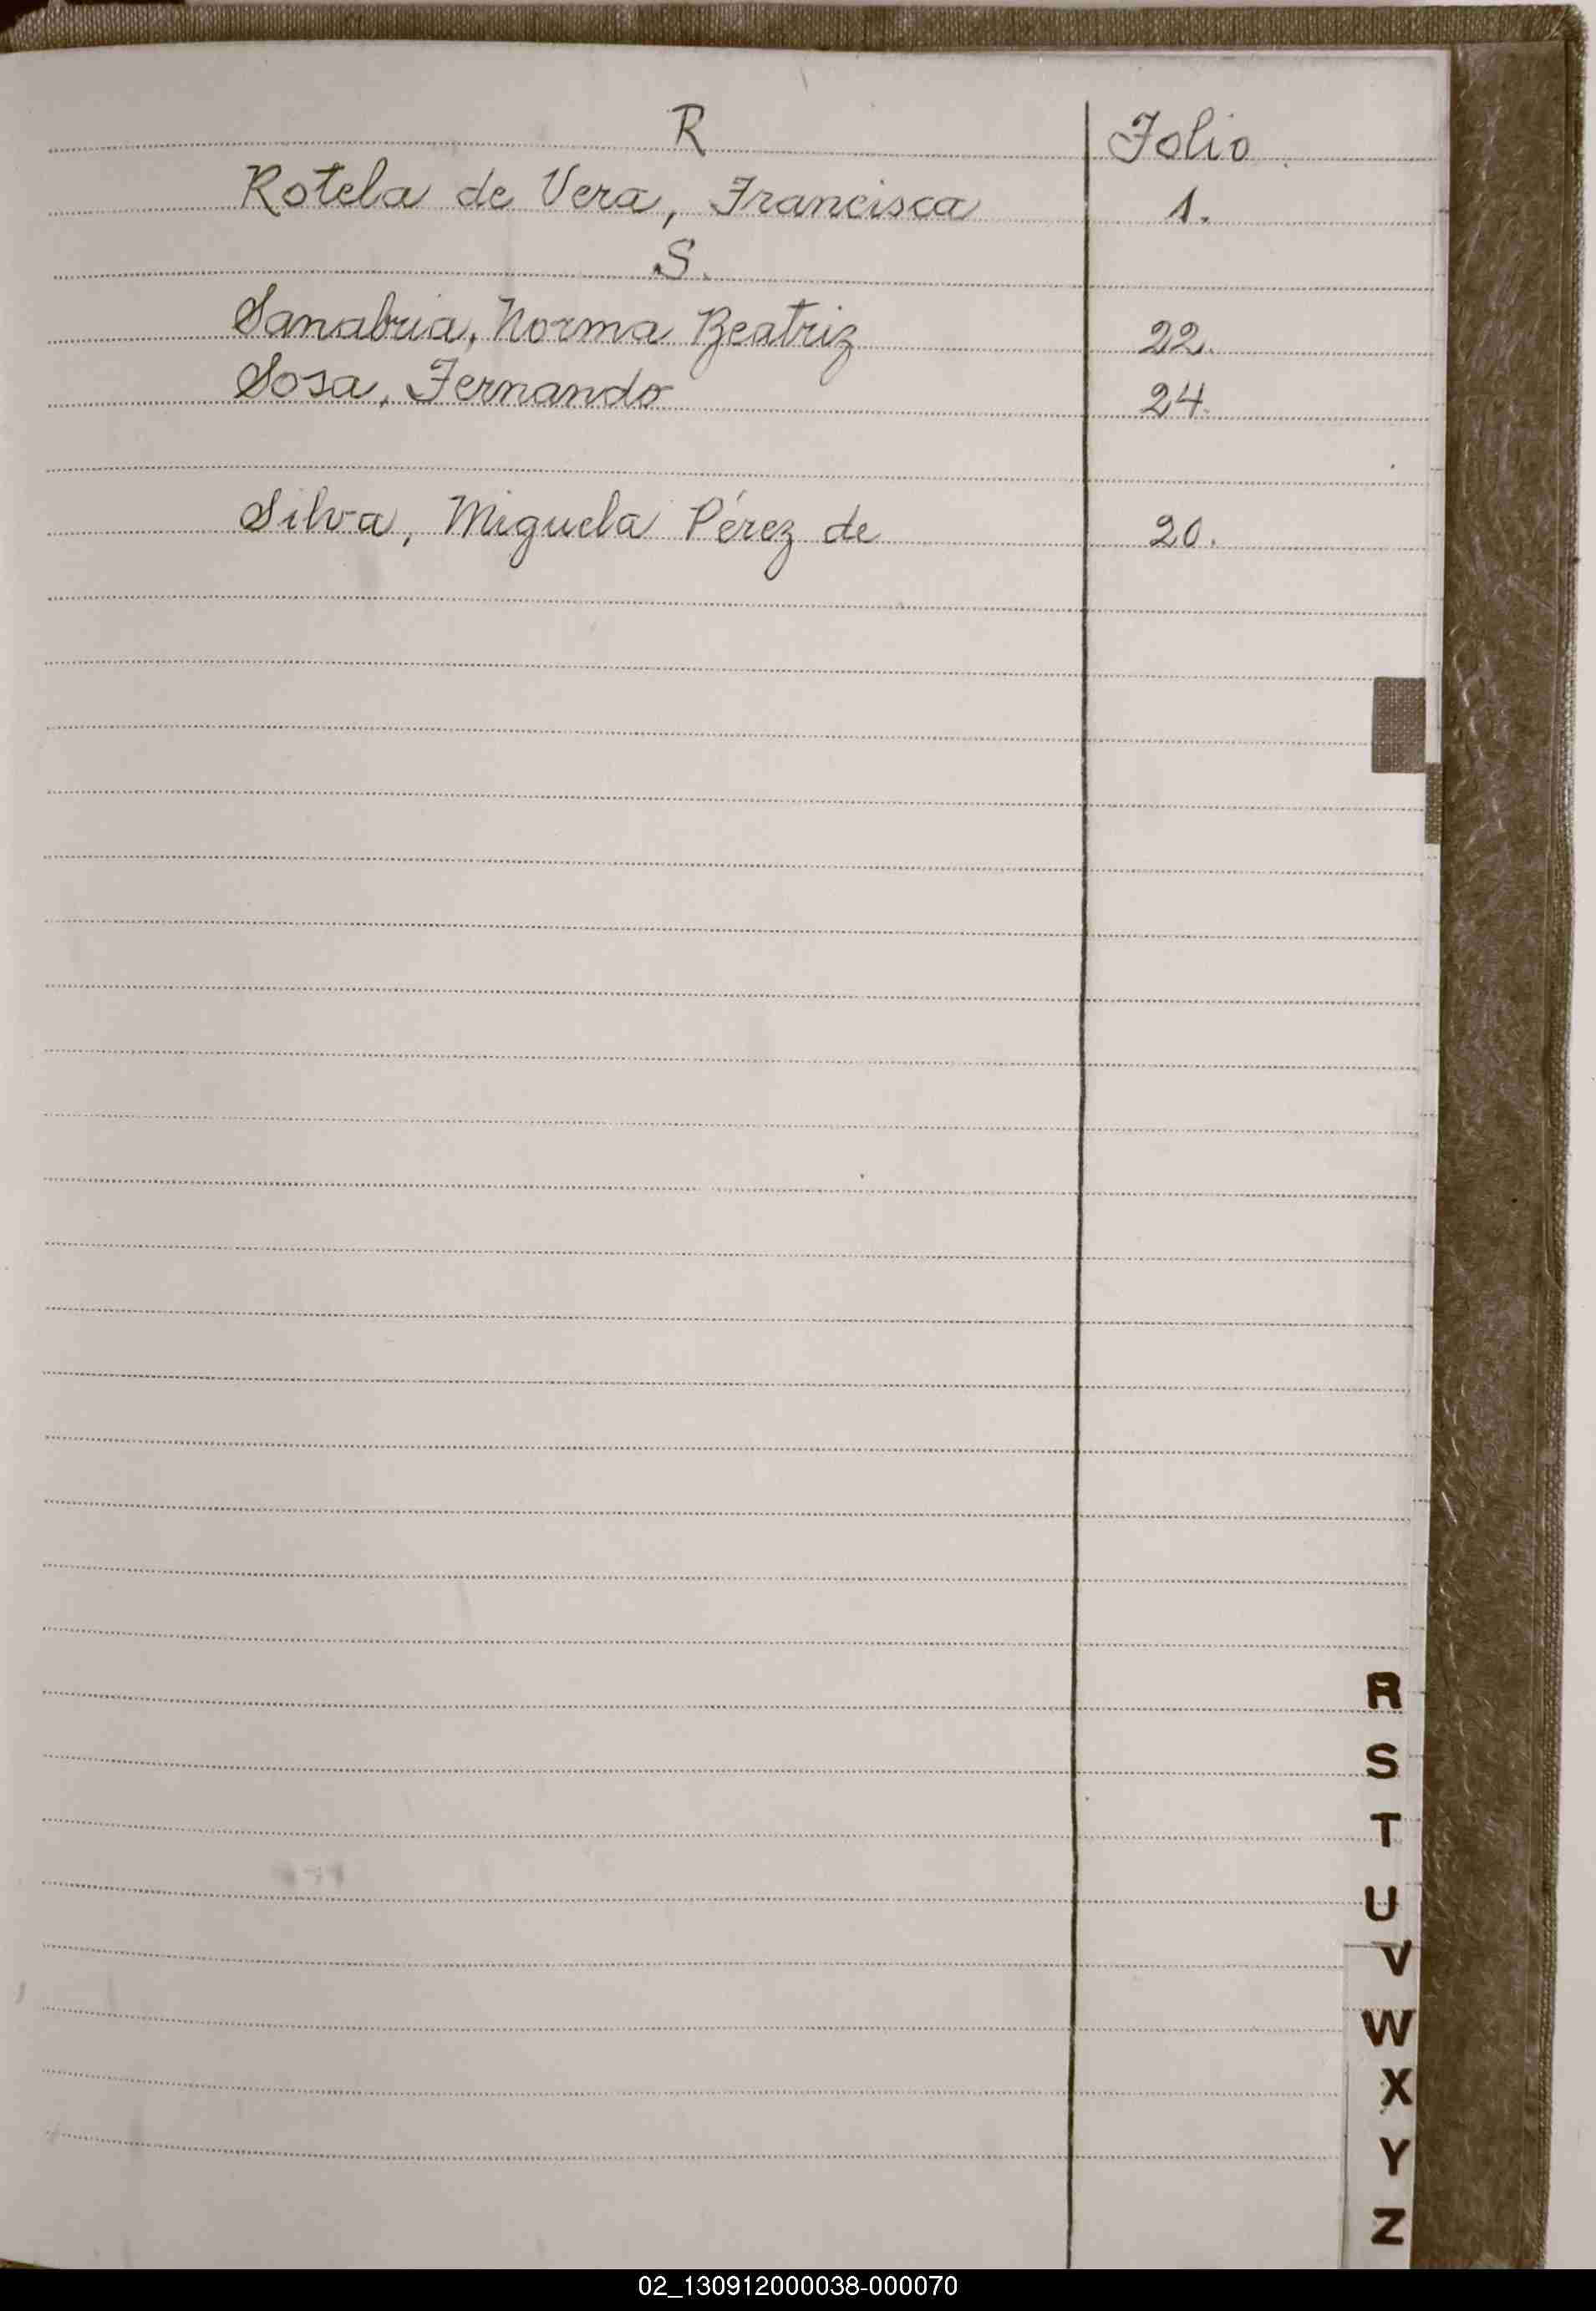 R Folio
Rotela de Vera, Francisca 1.
S.
Sanabria, Norma Beatriz 22.
Sosa, Fernando 24.
Silva, Miguela Pérez de 20.
R
S
T
U
V
W
X
Y
Z
02_130912000038-000070